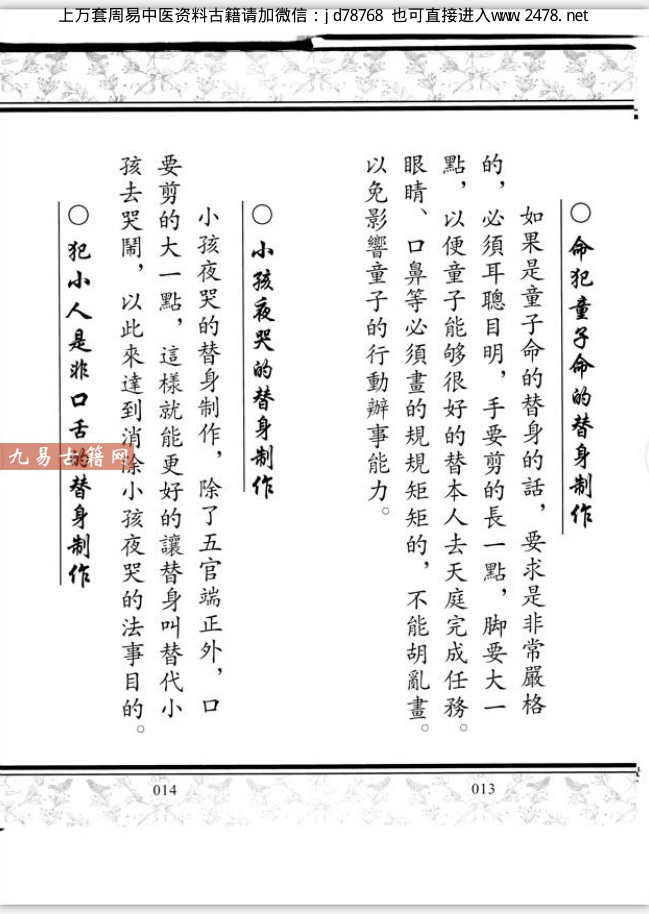 上万套周易中医资料古籍请加微信：jd78768 也可直接进入www.2478.net
○ 命犯童子命的替身制作
如果是童子命的替身的話，要求是非常嚴格
的，必須耳聰目明，手要剪的長一點，脚要大一
點，以便童子能够很好的替本人去天庭完成任務。
眼睛、口鼻等必須畫的規規矩矩的，不能胡亂畫。
以免影響童子的行動辦事能力。
○ 小孩夜哭的替身制作
小孩夜哭的替身制作，除了五官端正外，口
要剪的大一點，這樣就能更好的讓替身叫替代小
孩去哭鬧，以此來達到消除小孩夜哭的法事目的。
○ 犯小人是非口舌的替身制作
九易古籍网
014
013